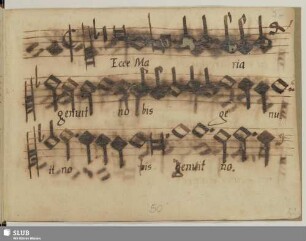 Ecce Ma ria
genuit no bis ge nu
it no bis genuit no.
50
SLUB
Wir führen Wissen.